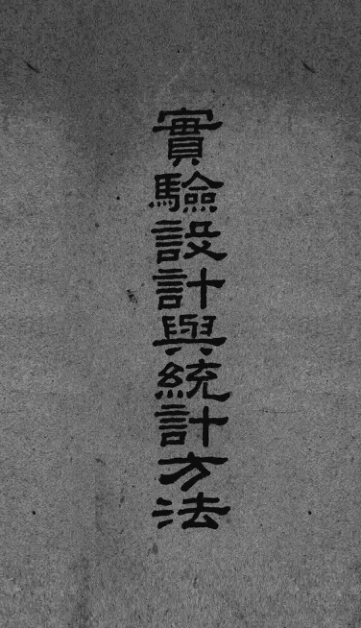 實驗設計與統計方法